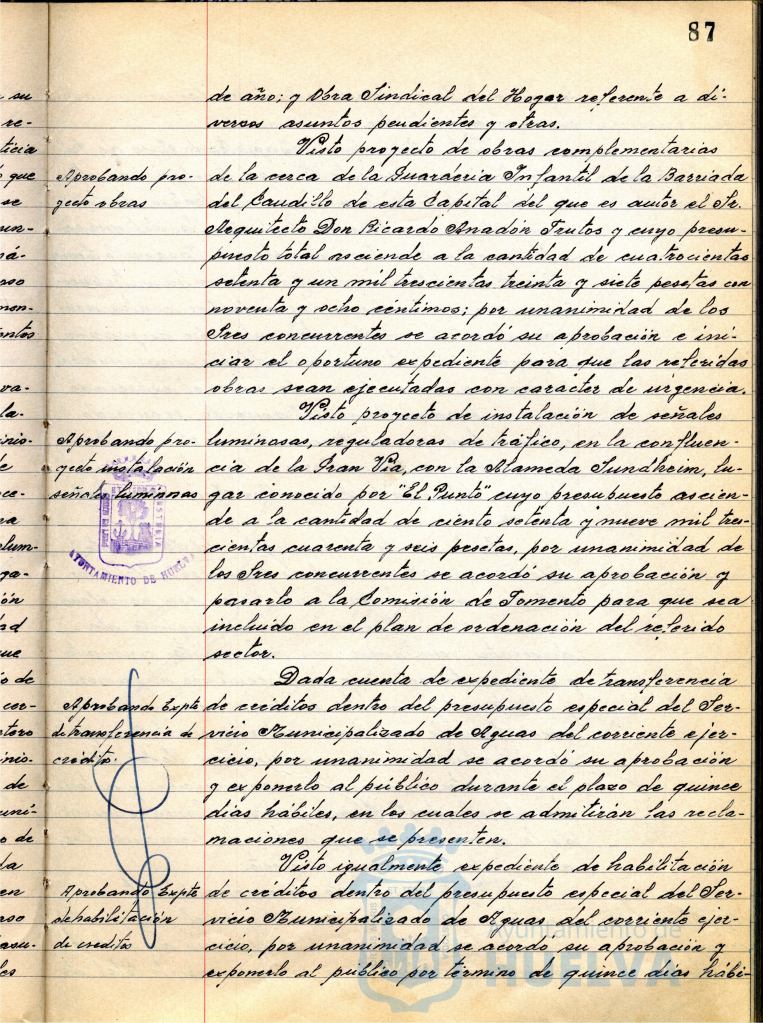 87
de año; y Obra Sindical del Hogar referente a di-
versos asuntos pendientes y otras.
Visto proyecto de obras complementarias
Aprobando pro-
yecto obras
de la cerca de la Guardería Infantil de la Barriada
del Caudillo de esta Capital del que es autor el Sr.
Arquitecto Don Ricardo Anadón Frutos y cuyo presu-
puesto total asciende a la cantidad de cuatrocientas
setenta y un mil trescientas treinta y siete pesetas con
noventa y ocho céntimos; por unanimidad de los
Sres concurrentes se acordó su aprobación e ini-
ciar el oportuno expediente para que las referidas
obras sean ejecutadas con carácter de urgencia.
Visto proyecto de instalación de señales
Aprobando pro-
yecto instalación
señales luminosas
luminosas, reguladoras de tráfico, en la confluen-
cia de la Gran Vía, con la Alameda Sundheim, lu-
gar conocido por "El Punto" cuyo presupuesto ascien-
de a la cantidad de ciento setenta y nueve mil tres-
cientas cuarenta y seis pesetas, por unanimidad de
los Sres concurrentes se acordó su aprobación y
pasarlo a la Comisión de Fomento para que sea
incluido en el plan de ordenación del referido
sector.
AYUNTAMIENTO DE HUELVA
Dada cuenta de expediente de transferencia
Aprobando Expte
de transferencia de
crédito.
de créditos dentro del presupuesto especial del Ser-
vicio Municipalizado de Aguas del corriente ejer-
cicio, por unanimidad se acordó su aprobación
y exponerlo al público durante el plazo de quince
días hábiles, en los cuales se admitirán las recla-
maciones que se presenten.
Visto igualmente expediente de habilitación
Aprobando Expte
de habilitación
de credito
de créditos dentro del presupuesto especial del Ser-
vicio Municipalizado de Aguas del corriente ejer-
cicio, por unanimidad se acordo su aprobación y
exponerlo al público por término de quince días hábi-
Ayuntamiento de
HUELVA